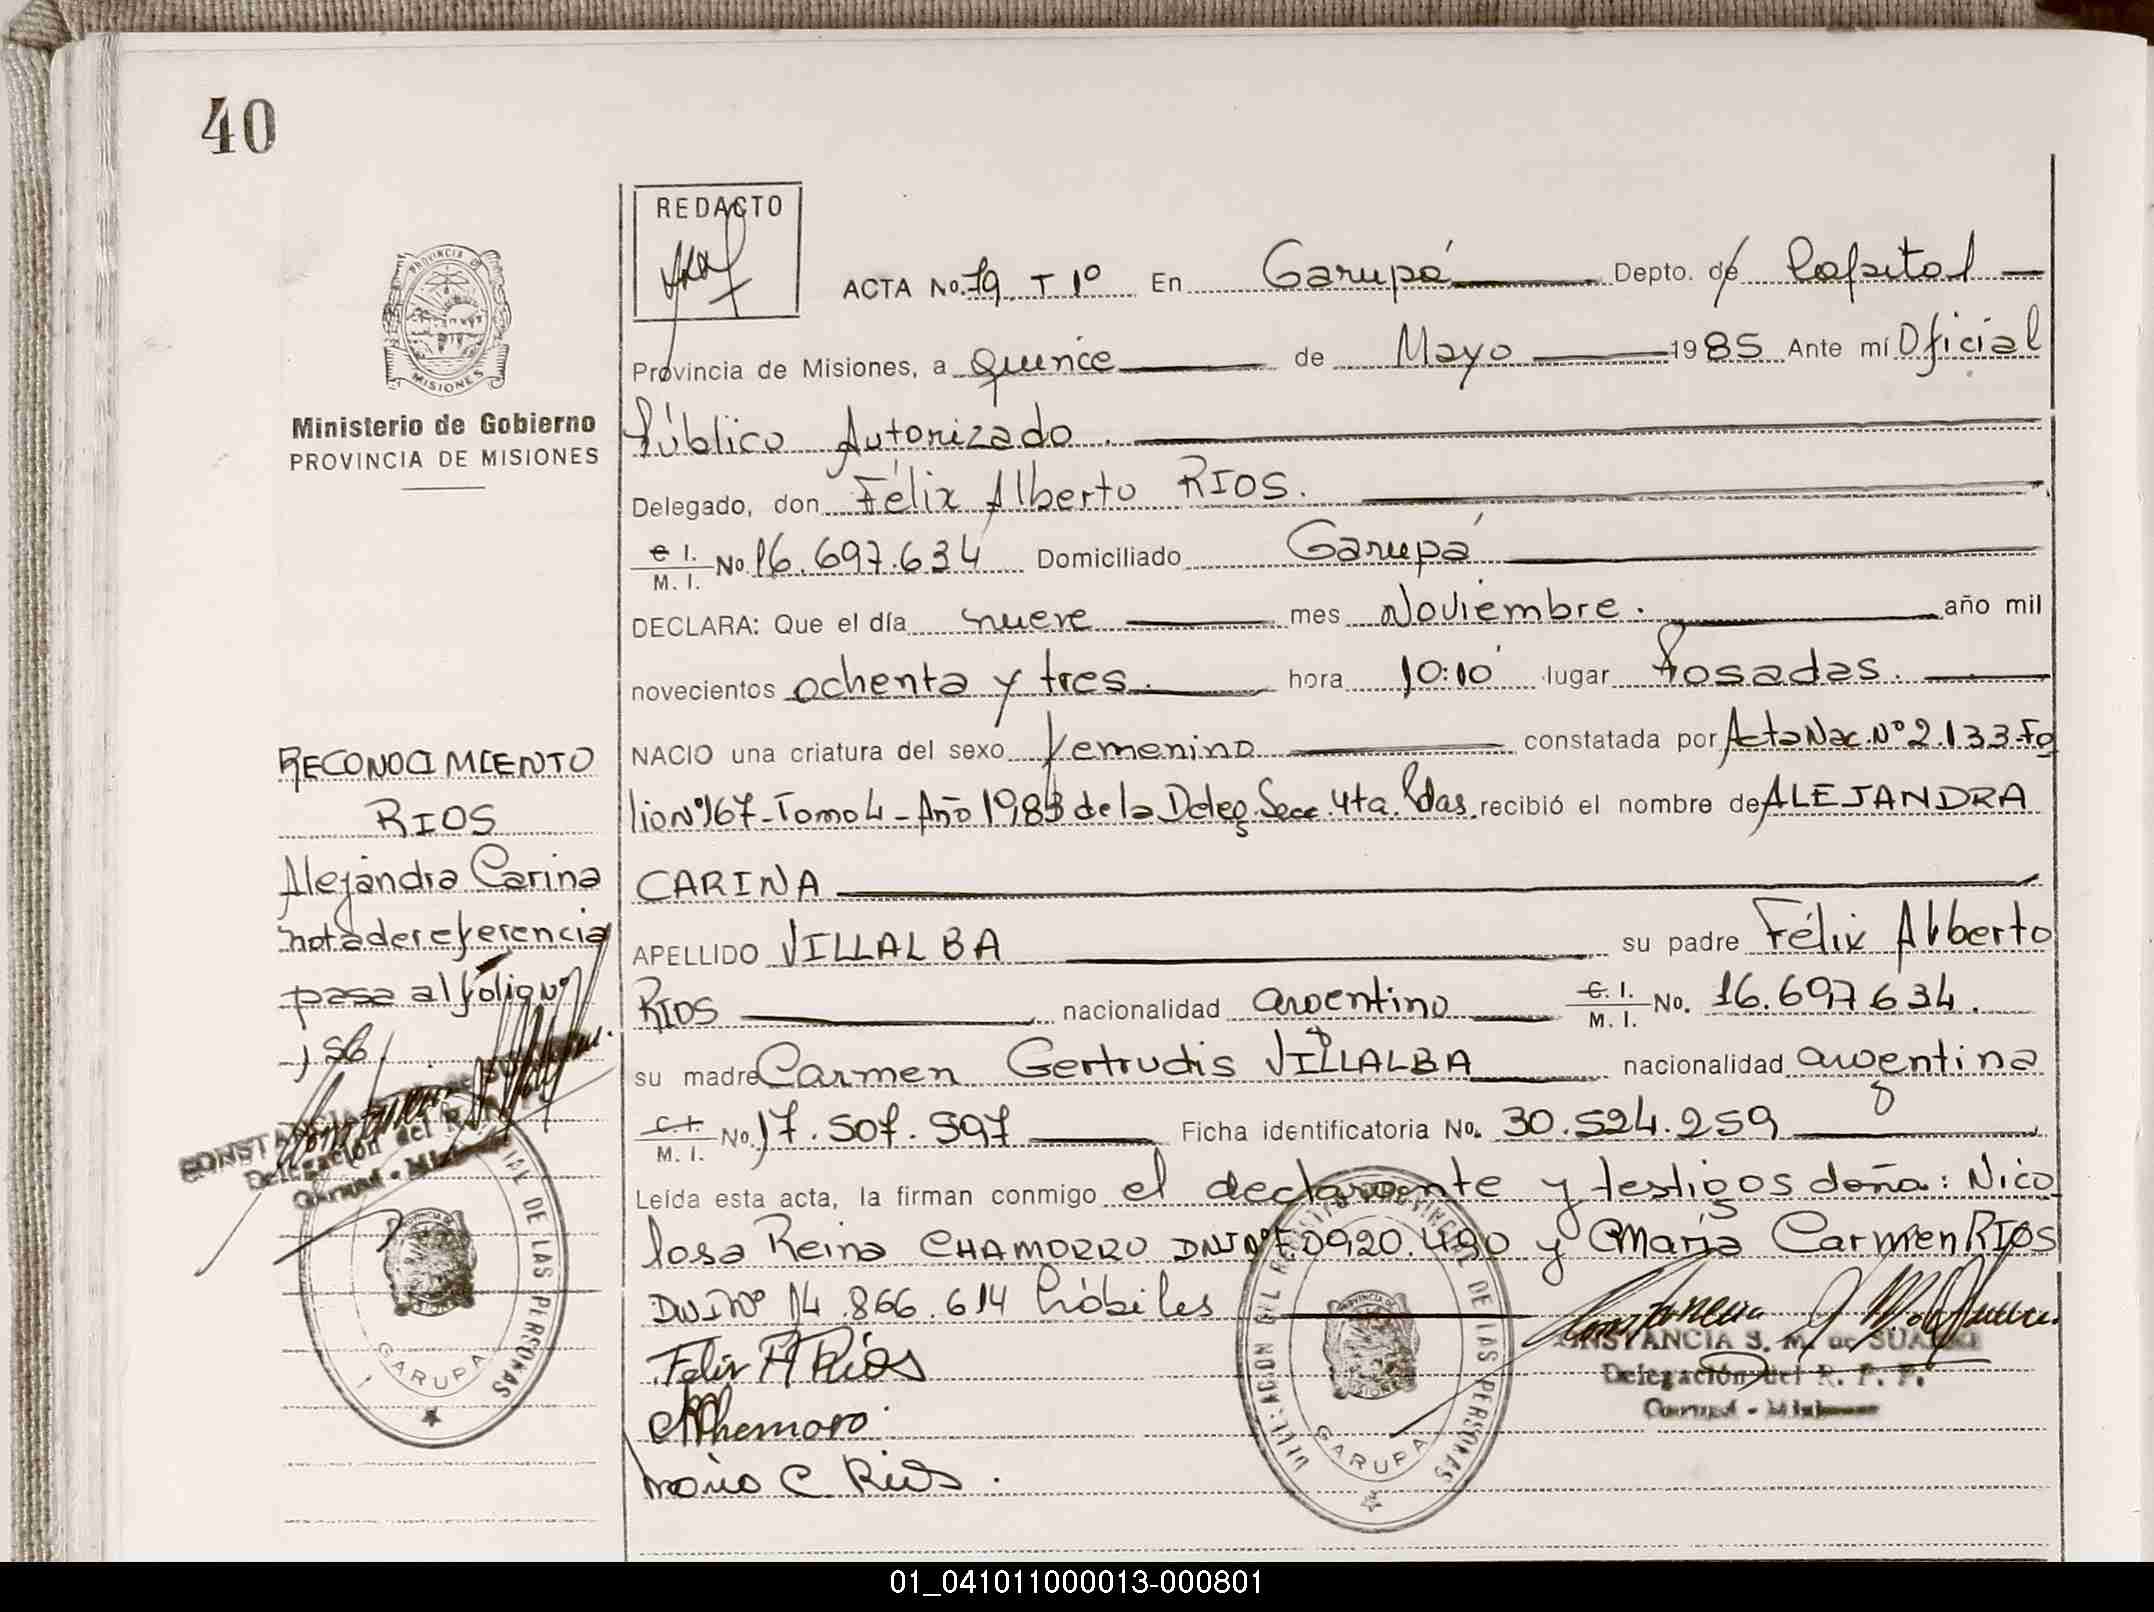 40
REDACTO
PROVINCIA DE
MISIONES
Ministerio de Gobierno
PROVINCIA DE MISIONES
ACTA No. 79 T 1º En Garupá Depto. de Capital
Provincia de Misiones, a quince de Mayo 1985 Ante mí Oficial
Público Autorizado.
Delegado, don Félix Alberto RIOS.
C.I. / M.I. No. 16.697.634 Domiciliado Garupá
DECLARA: Que el día nueve mes Noviembre. año mil
novecientos ochenta y tres. hora 10:10 lugar Posadas.
NACIO una criatura del sexo femenino constatada por Acta Nac. Nº 2.133-Fo
lio Nº 167-Tomo 4-Año 1983 de la Deleg. Secc. 4ta. Pdas. recibió el nombre de ALEJANDRA
CARINA
APELLIDO VILLALBA su padre Félix Alberto
RIOS nacionalidad argentino C.I. / M.I. No. 16.697.634.
su madre Carmen Gertrudis VILLALBA nacionalidad argentina
C.I. / M.I. No. 17.507.597 Ficha identificatoria No. 30.524.259
Leída esta acta, la firman conmigo el declarante y testigos doña: Nico
losa Reina CHAMORRO DNI Nº 0920.490 y María Carmen RIOS
DNI Nº 14.866.614 hábiles
Felix A Rios
Chamorro
Maria C. Rios.
CONSTANCIA S. M. de
Delegación del R. P. P.
Garupá - Misiones
DELEGACION DEL REGISTRO PROVINCIAL DE LAS PERSONAS
GARUPA
RECONOCIMIENTO
RIOS
Alejandra Carina
nota de referencia
pasa al folio Nº
156
Delegación del R.
Garupá - Misiones
DE LAS PERSONAS
GARUPA
01_041011000013-000801